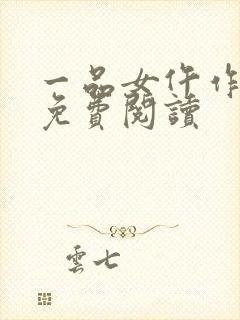 一品女仵作
免費閱讀
雲七